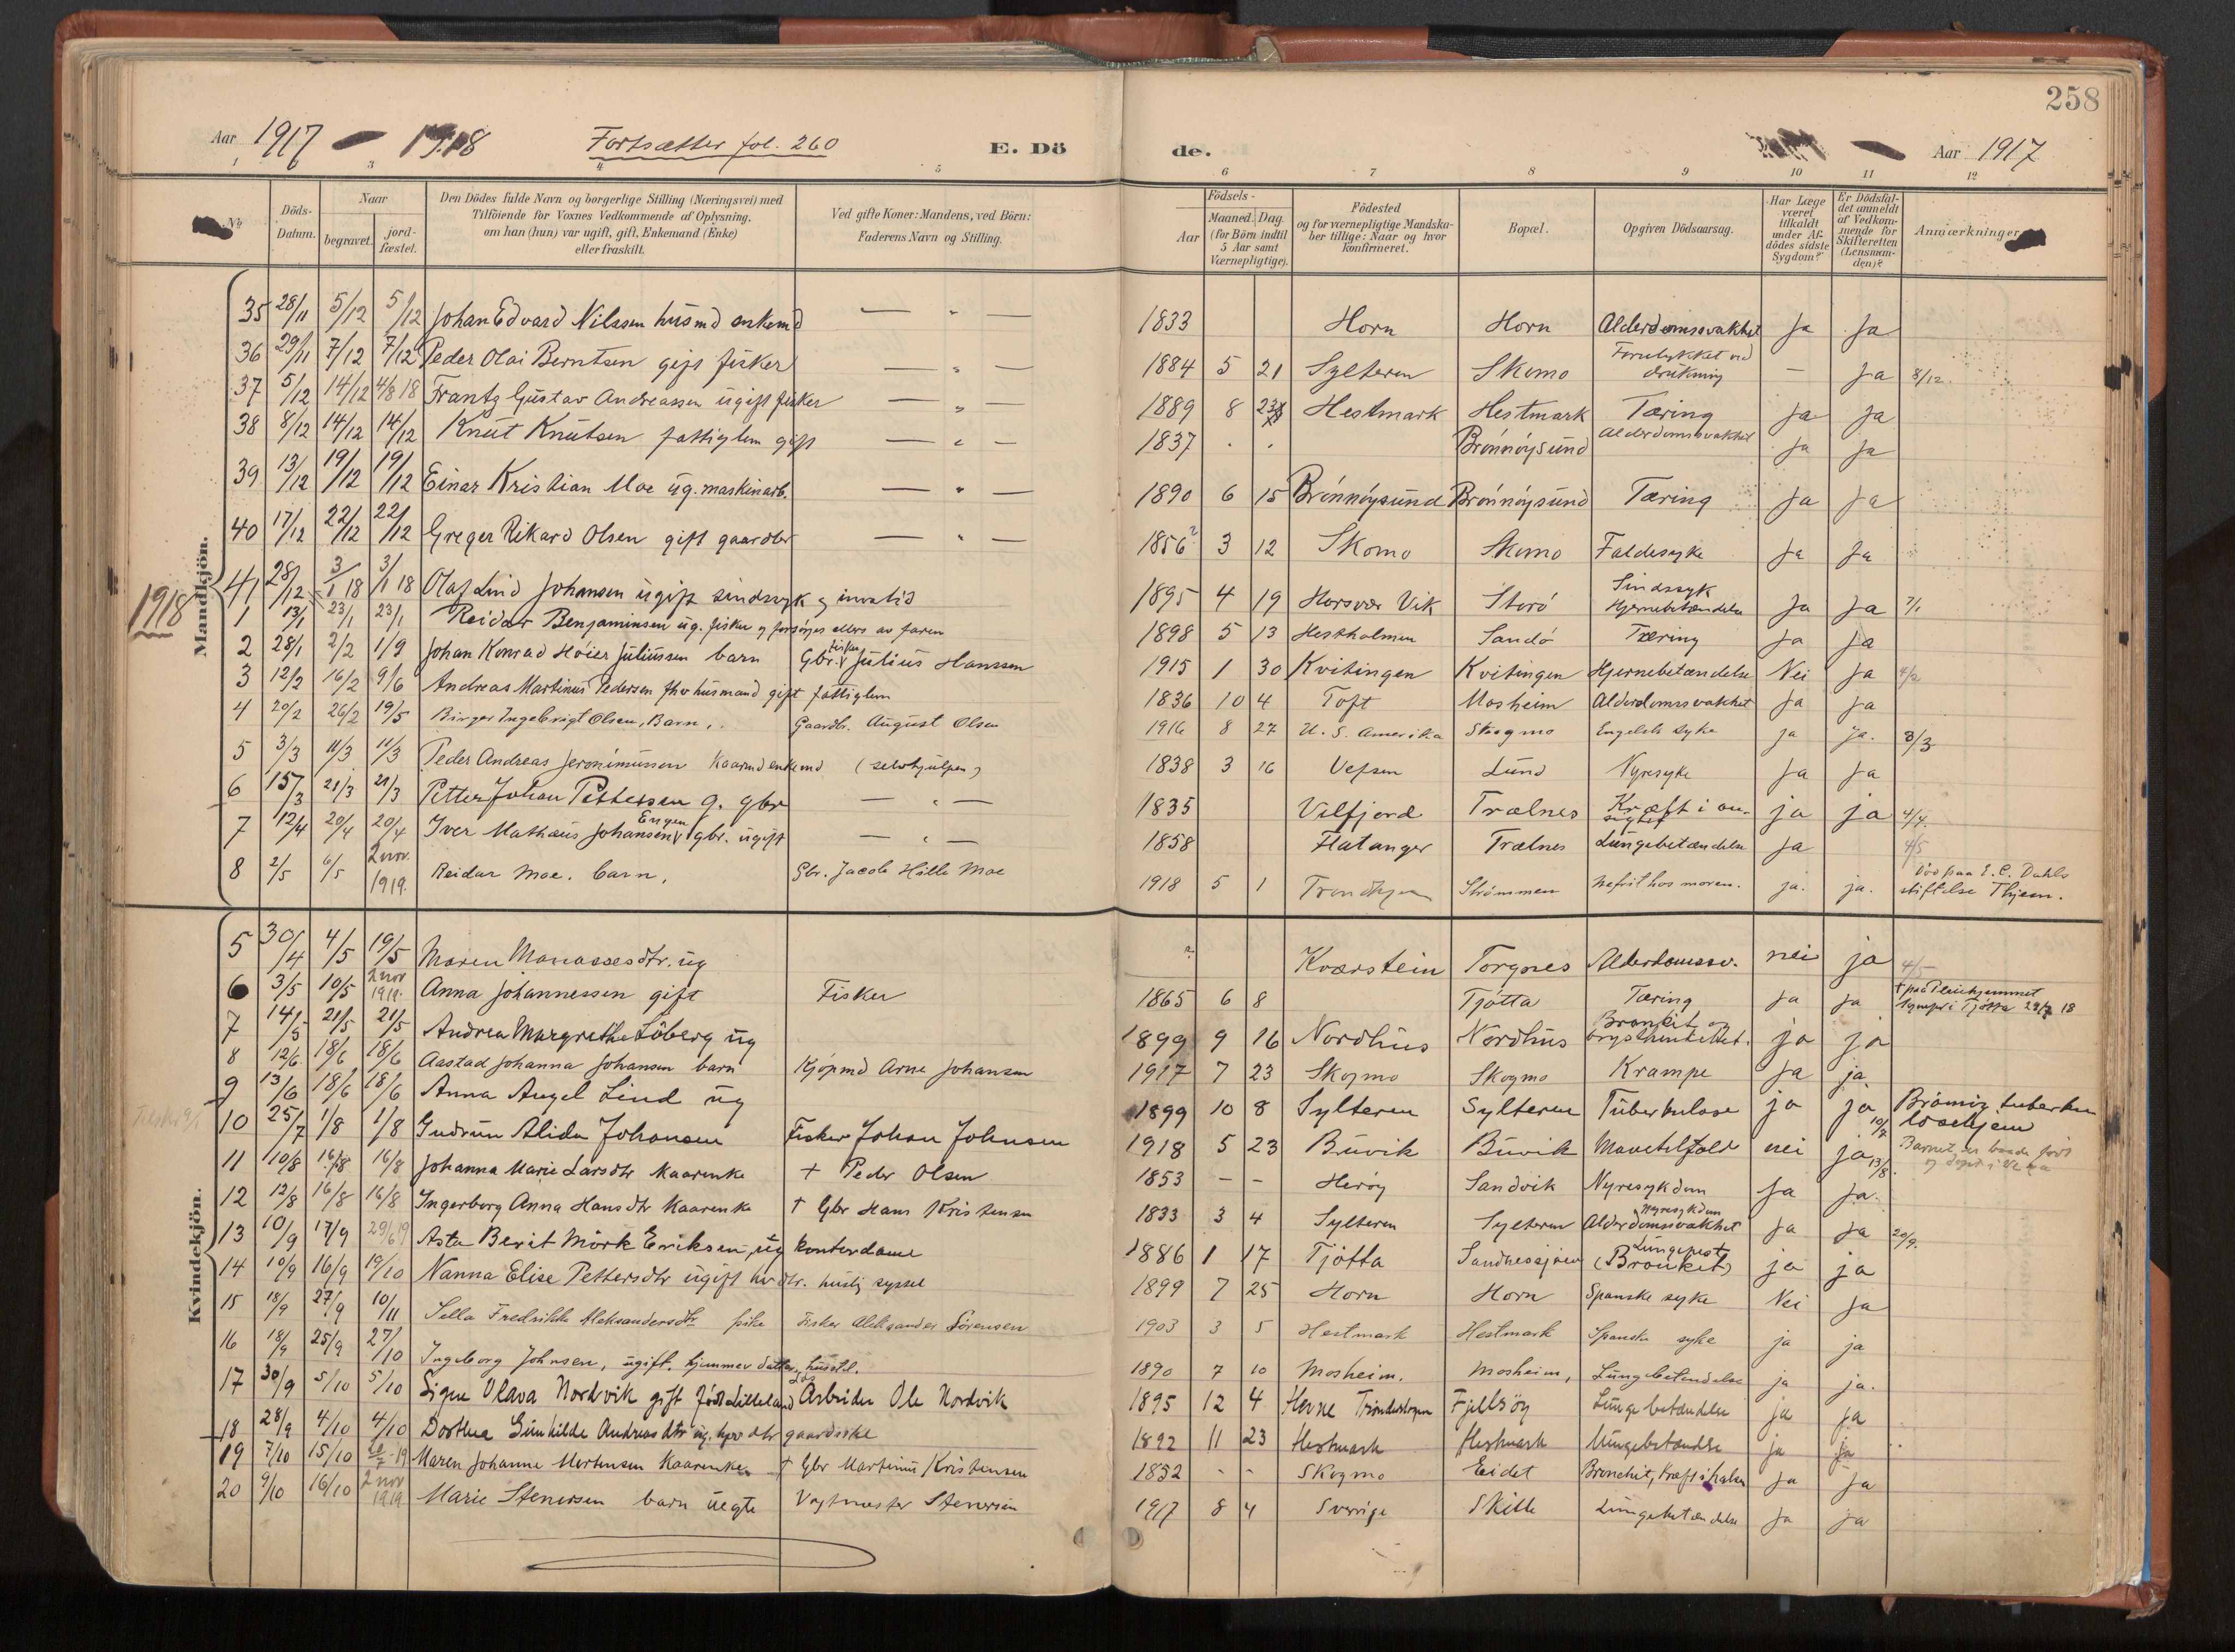 258
Aar 1917 — 1918 Fortsætter fol. 260 E. Dö de. Aar 1917
1 3 4 5 6 7 8 9 10 11 12
No Döds-Datum. Naar begravet. jord-fæstet. Den Dödes fulde Navn og borgerlige Stilling (Næringsvei) med Tilföiende for Voxnes Vedkommende af Oplysning, om han (hun) var ugift, gift, Enkemand (Enke) eller fraskilt. Ved gifte Koner: Mandens, ved Börn: Faderens Navn og Stilling. Födsels- Aar Maaned. Dag. (for Börn indtil 5 Aar samt Værnepligtige). Födested og for værnepligtige Mandska-ber tillige: Naar og hvor konfirmeret. Bopæl. Opgiven Dödsaarsag. Har Læge været tilkaldt under Af-dödes sidste Sygdom? Er Dödsfal-det anmeldt af Vedkom-mende for Skifteretten (Lensman-den)? Anmærkninger
Mandkjön.
35 28/11 5/12 5/12 Johan Edvard Nilssen husmd enkemd — " — 1833 Horn Horn Alderdomssvakhet Ja Ja
36 29/11 7/12 7/12 Peder Olai Berntsen gift fisker — " — 1884 5 21 Sylteren Skomo Forulykket ved drukning — Ja 8/12.
37 5/12 14/12 4/8 18 Frantz Gustav Andreassen ugift fisker — " — 1889 8 23 Hestmark Hestmark Tæring Ja Ja
38 8/12 14/12 14/12 Knut Knutsen fattiglem gift — " — 1837 . . Brönnöysund Alderdomssvakhet Ja Ja
39 13/12 19/12 19/12 Einar Kristian Moe ug. maskinarb. — " — 1890 6 15 Brönnöysund Brönnöysund Tæring Ja Ja
40 17/12 22/12 22/12 Greger Rikard Olsen gift gaardbr — " — 1856? 3 12 Skomo Skomo Faldesyke Ja Ja
41 28/12 3/1 18 3/1 18 Olaf Lind Johansen ugift sindssyk og invalid 1895 4 19 Horsvær Vik Storö Sindssyk Hjernebetændelse Ja Ja 7/1
1918
1 13/1 23/1 23/1 Reidar Benjaminsen ug. fisker og forsörges ellers av faren 1898 5 13 Hestholmen Sandö Tæring Ja Ja
2 28/1 2/2 1/9 Johan Konrad Höier Juliussen barn Gbr. fisker Julius Hanssen 1915 1 30 Kvitingen Kvitingen Hjernebetændelse Nei Ja 4/2
3 12/2 16/2 9/6 Andreas Martinus Pedersen fhv husmand gift fattiglem 1836 10 4 Toft Mosheim Alderdomssvakhet Ja Ja
4 20/2 26/2 19/5 Birger Ingebrigt Olsen, Barn, . Gaardbr. August Olsen 1916 8 27 U. S. Amerika Skogmo Engelsk syke ja ja. 8/3
5 3/3 11/3 11/3 Peder Andreas Jeronimussen Kaarmd enkemd (selvhjulpen) 1838 3 16 Vefsen Lund Nyresyke Ja Ja
6 15/3 21/3 21/3 Petter Johan Pettersen g. gbr — " — 1835 Velfjord Trælnes Kræft i an-sigtet ja ja 4/4.
7 12/4 20/4 20/4 Iver Mathæus Johansen Engen gbr. ugift — " — 1858 Flatanger Trælnes Lungebetændelse Ja 4/5
8 2/5 6/5 2 nov. 1919. Reidar Moe. barn. Gbr. Jacob Hille Moe 1918 5 1 Trondhjem Strömmen Nefrit hos moren. ja. ja. Död paa E. C. Dahls stiftelse Thjem.
Kvindekjön.
5 30/4 4/5 19/5 Maren Manassesdtr. ug ? Kværstein Torgnes Alderdomssv. nei ja 4/5
6 3/5 10/5 2 nov 1919. Anna Johannessen gift Fisker 1865 6 8 Tjötta Tæring Ja Ja † paa Pleiehjemmet
7 14/5 21/5 21/5 Andrea Margrethe Löberg ug 1899 9 16 Nordhus Nordhus Bronkit og ja ja
8 12/6 18/6 18/6 Aastad Johanna Johansen barn Kjöpmd Arne Johansen 1917 7 23 Skogmo Skogmo Krampe Ja ja
9 13/6 18/6 18/6 Anna Angel Lind ug 1899 10 8 Sylteren Sylteren Tuberkulose ja ja Brömig tuberku losehjem
10 25/7 1/8 1/8 Gudrun Alida Johansen Fisker Johan Johnsen 1918 5 23 Buvik Buvik Mavetilfælde nei ja Barnet er baade født
11 10/8 16/8 16/8 Johanna Marie Larsdtr Kaarenke + Peder Olsen 1853 – – Heröy Sandvik Nyresykdom Ja Ja. 13/8
12 12/8 16/8 16/8 Ingerborg Anna Hansdtr Kaarenke † Gbr Hans Kristensen 1833 3 4 Sylteren Sylteren Nyresykdom Alderdomssvakhet Ja Ja 20/9.
13 10/9 17/9 29/6 19 Asta Berit Mörk Eriksen, ug kontordame 1886 1 17 Tjötta Sandnessjöen Lungepest (Bronkit) ja ja
14 10/9 16/9 19/10 Nanna Elise Pettersdtr ugift hv dtr. huslig syssel 1899 7 25 Horn Horn Spanske syke Nei Ja
15 18/9 27/9 10/11 Sella Fredrikke Aleksandersdtr pike Fisker Aleksander Sörensen 1903 3 5 Hestmark Hestmark Spanske syke ja ja
16 18/9 25/9 27/10 Ingeborg Johnsen, ugift, hjemmev. datter, husstel. 1890 7 10 Mosheim. Mosheim, Lungebetendelse ja ja.
17 30/9 5/10 5/10 Signe Olava Nordvik gift född Lilleland Arbeider Ole Nordvik 1895 12 4 Hevne Trönderlagen Fjellsöy Lungebetændelse ja ja
18 28/9 4/10 4/10 Dorthea Gunhilde Andreasdtr ug. hjv dtr gaardsstel 1892 11 23 Hestmark Hestmark Lungebetændelse ja ja
19 7/10 15/10 Maren Johanne Mortensen Kaarenke † Gbr Martinus Kristensen 1832 – – Skogmo Eidet Bronchit, Kræft i halsen Ja Ja
20 9/10 16/10 2 nov 1919 Marie Stenersen barn uegte Vegtmester Stenersen 1917 8 4 Sverrige Skille Lungebetændelse Ja ja